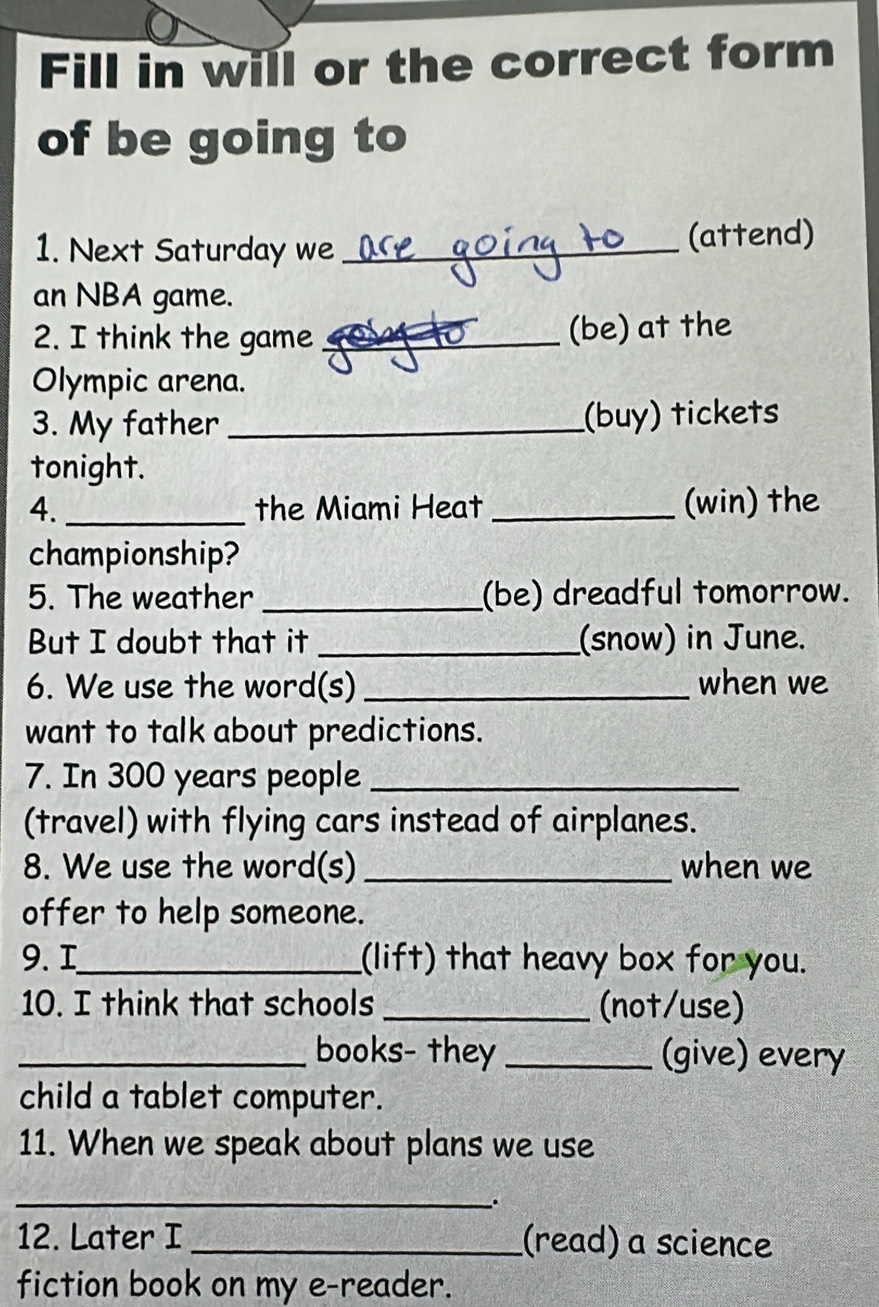 Fill in will or the correct form
of be going to
1. Next Saturday we are going to (attend)
an NBA game.
2. I think the game going to (be) at the
Olympic arena.
3. My father ____________ (buy) tickets
tonight.
4. ____________ the Miami Heat ____________ (win) the
championship?
5. The weather ____________ (be) dreadful tomorrow.
But I doubt that it ____________ (snow) in June.
6. We use the word(s) ____________ when we
want to talk about predictions.
7. In 300 years people ____________
(travel) with flying cars instead of airplanes.
8. We use the word(s) ____________ when we
offer to help someone.
9. I ____________ (lift) that heavy box for you.
10. I think that schools ____________ (not/use)
____________ books- they ____________ (give) every
child a tablet computer.
11. When we speak about plans we use
____________.
12. Later I ____________ (read) a science
fiction book on my e-reader.